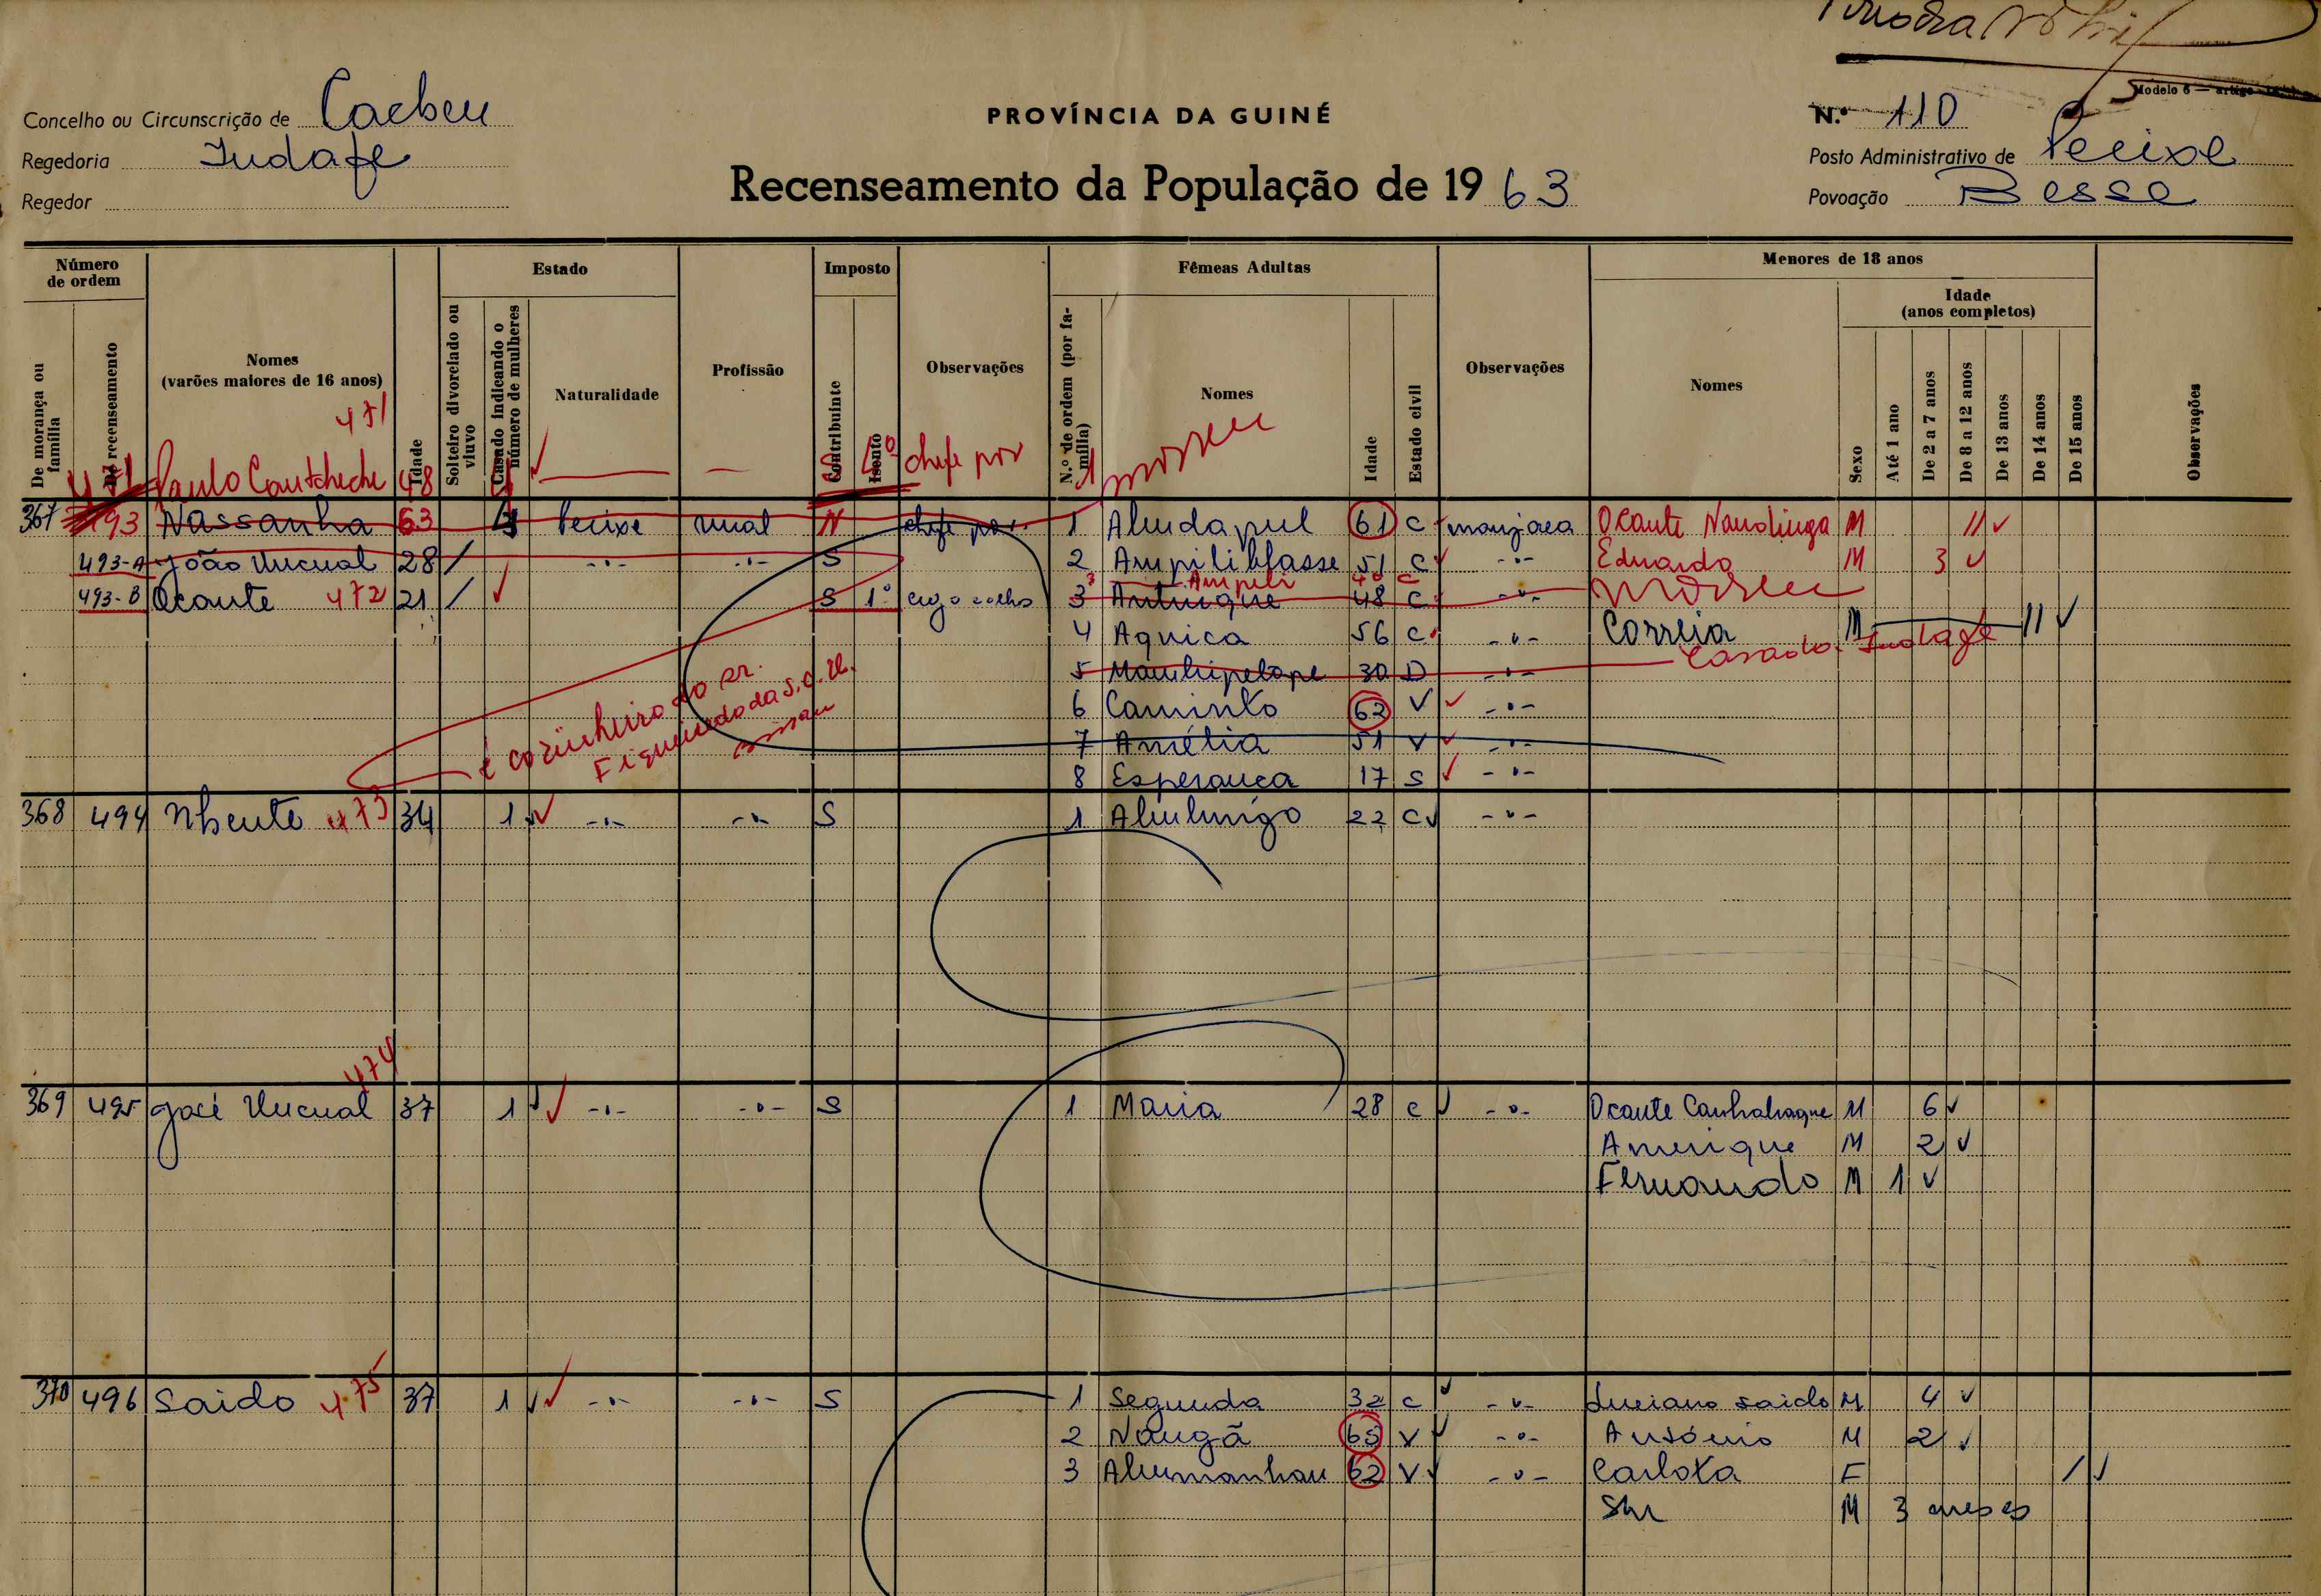 Modelo 6 — artigo
Concelho ou Circunscrição de Caebeu
PROVÍNCIA DA GUINÉ
N.º 110
Regedoria Indafe
Posto Administrativo de Pecixe
Regedor
Recenseamento da População de 1963
Povoação Besse
Número de ordem
Estado
Imposto
Fêmeas Adultas
Menores de 18 anos
Idade (anos completos)
De morança ou família
De recenseamento
Nomes (varões maiores de 16 anos)
Idade
Solteiro divorciado ou viuvo
Casado indicando o número de mulheres
Naturalidade
Profissão
Contribuinte
Isento
Observações
N.º de ordem (por família)
Nomes
Idade
Estado civil
Observações
Nomes
Sexo
Até 1 ano
De 2 a 7 anos
De 8 a 12 anos
De 13 anos
De 14 anos
De 15 anos
Observações
471
471 Paulo Cautcheche 48 4 S 4º chefe pov 1 morreu
367 493 Nassanha 63 4 Pecixe rural N chefe pov. 1 Aludapul 61 C manjaca Ocante Nandinga M 11
493-A João Ucunal 28 / -"- -"- S 2 Ampiliblasse 51 C -"- Eduardo M 3
3 Ampeli 40 C
493-B Ocante 472 21 / S 1º cego olho 3 48 C -"- morreu
4 Aquica 56 C -"- Correia M 11
5 30 D -"- Casado. Indafe
6 Caminto 62 V -"-
7 Amélia 51 V -"-
8 Esperança 17 S -"-
é cozinheiro do sr.
Figueiredo da S.C.U.
Bissau
368 494 Nhente 473 34 1 -"- -"- S 1 Alulungo 22 C -"-
474
369 495 José Ucunal 37 1 -"- -"- S 1 Maria 28 C -"- Ocante Canhahaque M 6
Amerique M 2
Fernando M 1
370 496 Saido 475 37 1 -"- -"- S 1 Segunda 32 C -"- Luciano Saido M 4
2 Nangã 65 V -"- António M 2
3 Alumanhau 62 V -"- Carlota F /
S/n M 3 meses